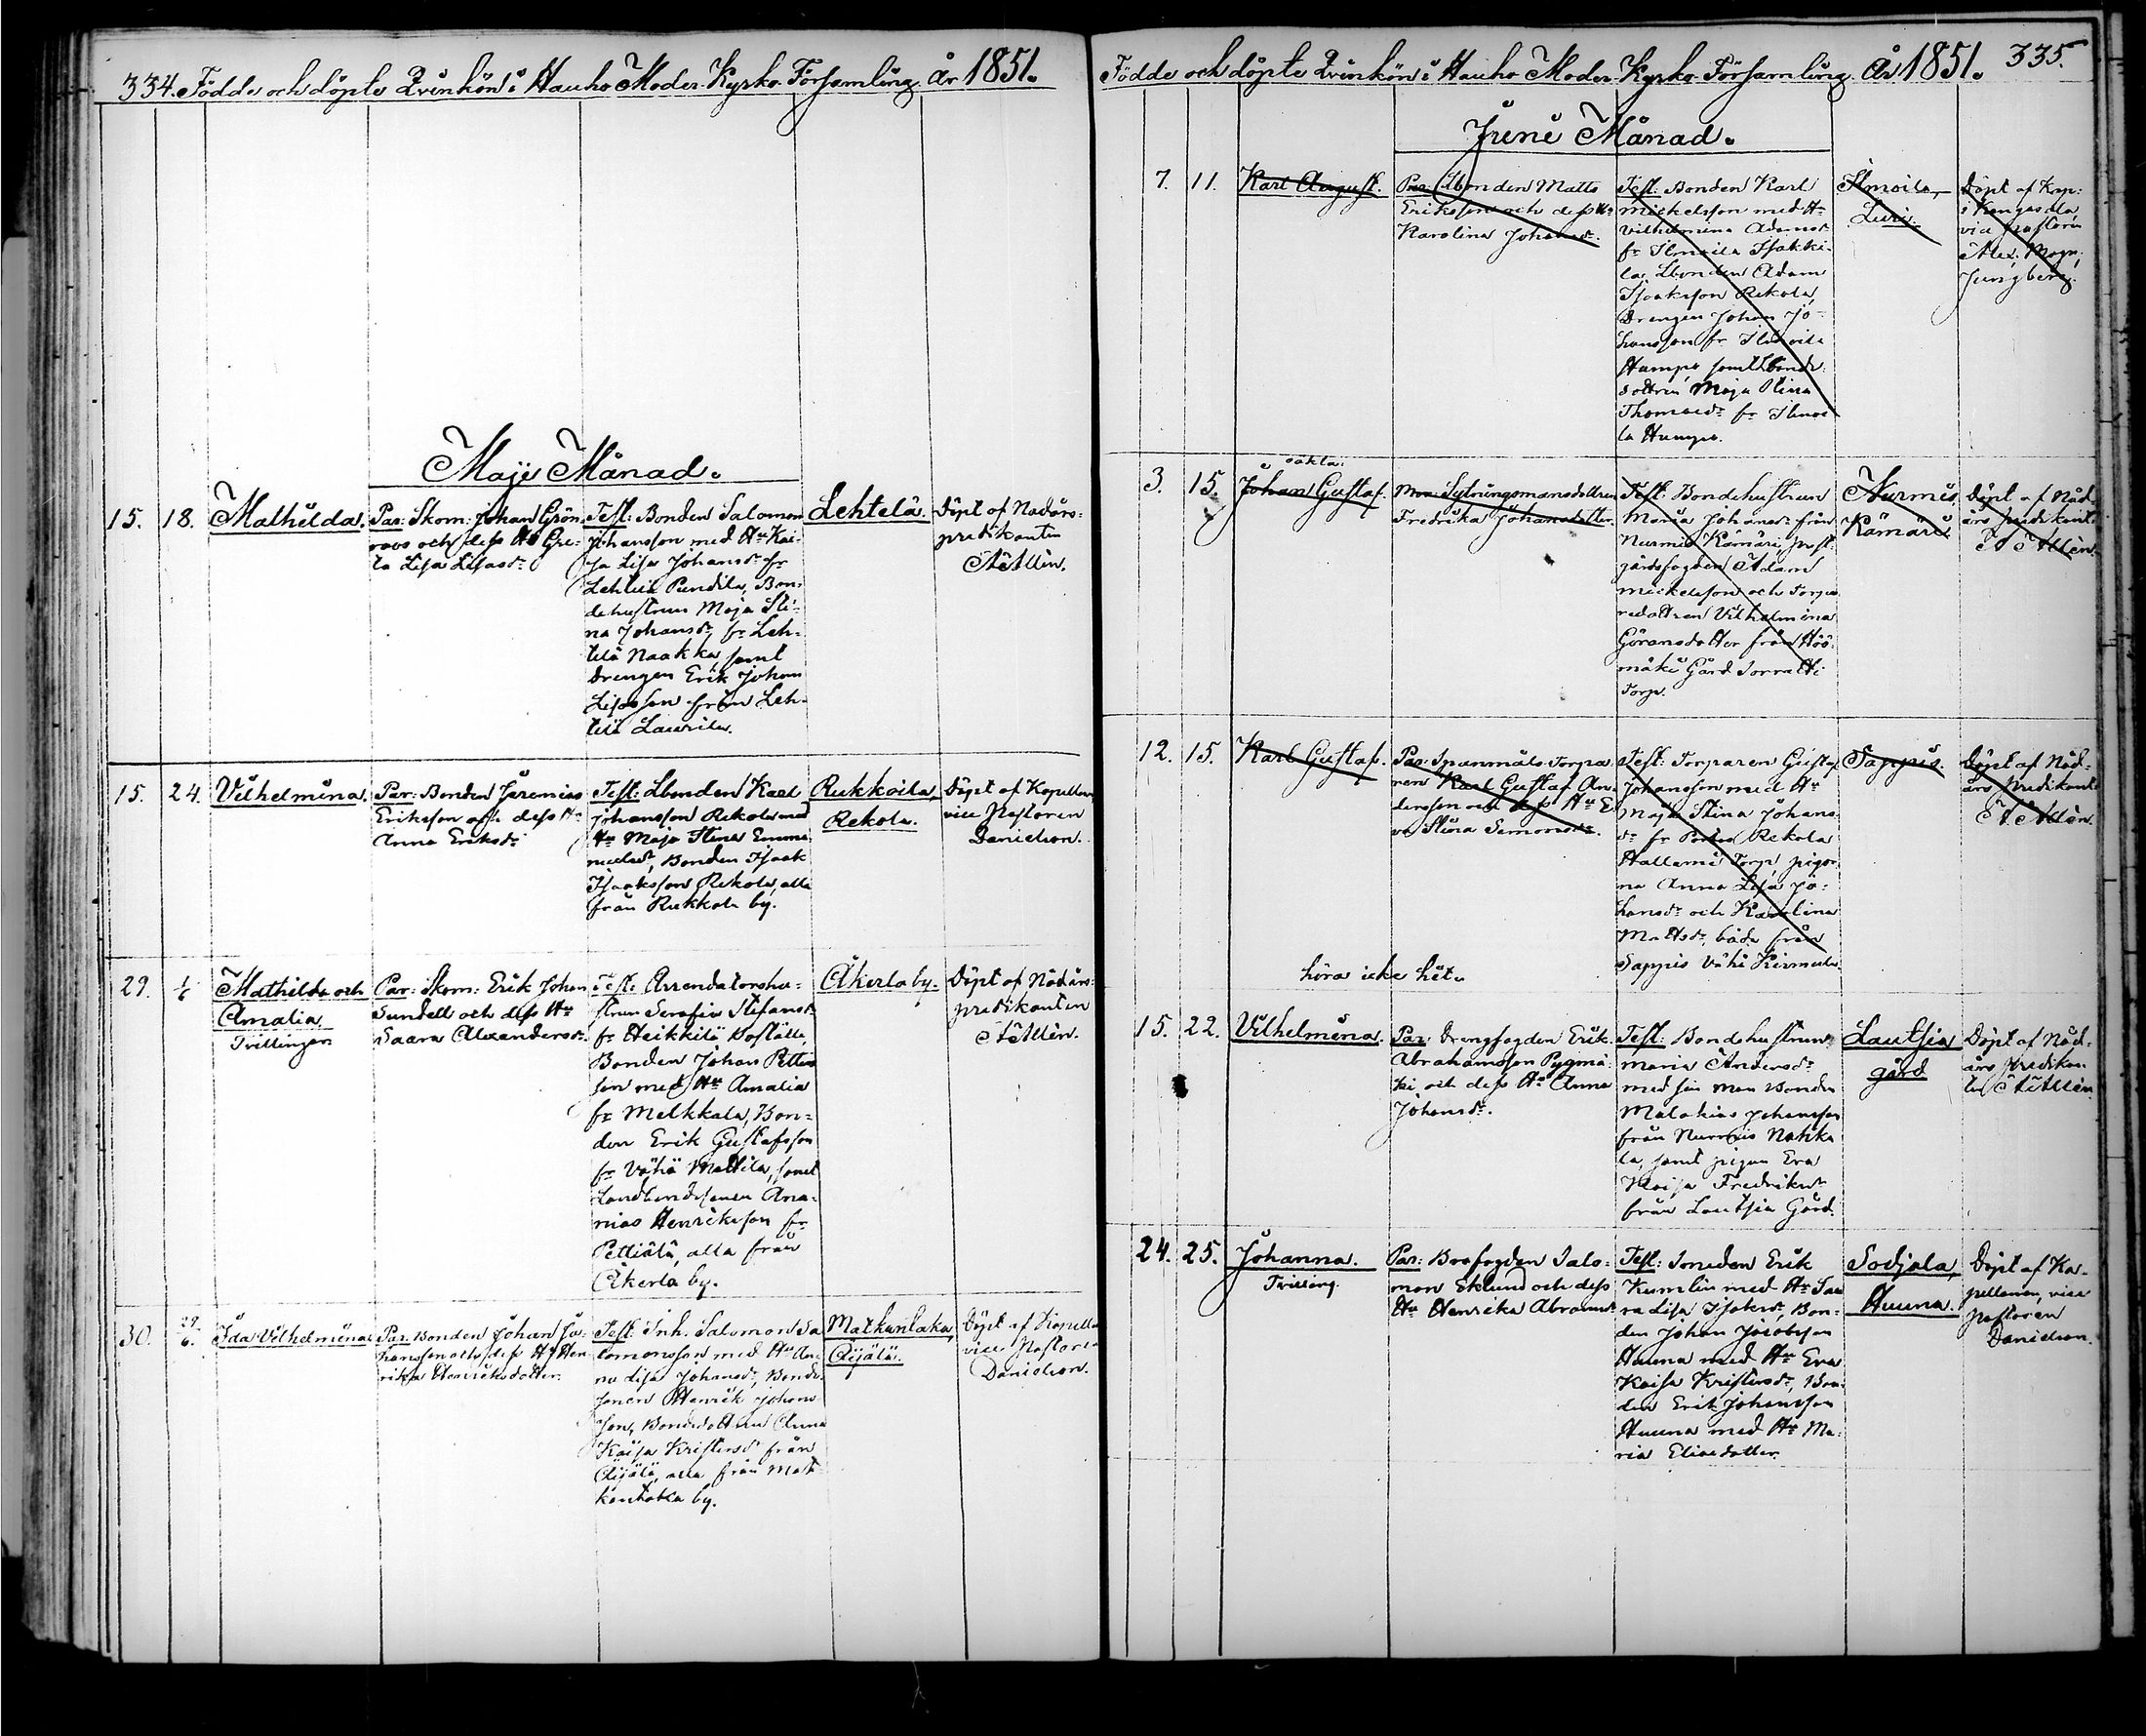 334. Födde och döpte Qvinkön i Hauho Moder-Kyrko-Församling År 1851.
Maji Månad.
15. 18. Mathilda.
Par: Skom: Johan Grön
roos och dess Hu Gre-
ta Lisa Lisasdr
Test: Bonden Salomon
Johansson med Hu Kai-
sa Lisa Johansdr fr
Lehtilä Pundila, Bon-
dehustrun Maja Sti-
na Johansdr, fr Leh-
tilä Naakka, samt
Drengen Erik Johan
Lisasson från Leh-
tilä Laurila.
Lehtelä.
Döpt af Nådårs-
predikanten
Allén.
15. 24. Vilhelmina.
Par: Bonden Jeremias
Eriksson och dess Hu
Anna Eriksdr
Test: Lbonden Karl
Johansson Rekola med
Hu Maja Stina Emma-
nuelsdr, Bonden Isaak
Isaaksson Rekola, alla
från Rukkola by.
Rukkoila,
Rekola.
Döpt af Kapellan
vice Pastoren
Danielson.
29. 1/6 Mathilda och
Amalia
Tvillingar.
Par: Skom: Erik Johan
Sundell och dess Hu
Saara Alexandersdr
Test: Arrendatorshu-
strun Serafia Stefansdr
fr Heikkilä Boställe,
Bonden Johan Petters
son med Hu Amalia
fr Melkkala, Bon-
den Erik Gustafsson
fr Vähä Mattila, samt
Landbondesonen Ana-
nias Henriksson fr
Pettiälä, alla från
Åkerla by.
Åkerla by.
Döpt af Nådårs-
predikanten
Allén.
30. 29/6. Ida Vilhelmina
Par: Bonden Johan Jo-
hansson och dess Hu Hen-
rika Henriksdotter.
Test: Inh. Salomon Sa
lomonsson med Hu An-
na Lisa Johansdr, Bonde-
sonen Henrik Johans
son, Bondedottren Anna
Kaisa Kristersdr från
Äijälä, alla från Mat
kantaka by.
Matkantaka,
Äijälä.
Döpt af Kapella
vice Pastoren
Danielson.
Födde och döpte Qvinkön i Hauho Moder-Kyrko-Församling År 1851. 335.
Juni Månad.
7. 11. Karl August.
Par: Lbonden Matts
Eriksson och dess Hu
Karolina Johansdr.
Test: Bonden Karl
Mickelsson med Hu
Vilhelmina Adamsdr
fr Ilmoila Isakki-
la, Lbonden Adam
Isaaksson Rekola,
Drengen Johan Jo-
hansson fr Ilmoila
Humpo samt Lbonde-
dottren Maja Stina
Thomasdr fr Ilmoi
la Humpo.
Ilmoila,
Luri.
Döpt af Kap:
i Kangasala,
vice Pastorn
Alex: Magn:
Jungberg.
3. 15. oäkta:
Johan Gustaf.
Mon: Sytningsmansdottren
Fredrika Johansdotter.
Test: Bondehustrun
Maria Johansdr från
Nurmis Kämäri, Prost-
gårdsfogden Adam
Mickelsson och Torpa-
redottren Vilhelmina
Göransdotter från Hås-
mäki Gård Torratti
Torp.
Nurmis,
Kämäri.
Döpt af Nåd
års predikant
A Allén.
12. 15. Karl Gustaf.
Par: Spannmåls-Torpa-
ren Karl Gustaf An-
dersson och dess Hu E-
va Stina Simonsdr.
Test: Torparen Gustaf
Johansson med Hu
Maja Stina Johans-
dr fr Rekola
Hallami Torp, pigor-
na Anna Lisa Jo-
hansdr och Karolina
Mattsdr, båda från
Sappis Vähi
Sappis.
Döpt af Nåd-
års predikant
A. Allén.
höra icke hit.
15. 22. Vilhelmina.
Par: Drengfogden Erik
Abrahamsson Pyymä-
ki och dess Hu Anna
Johansdr.
Test: Bondehustrun
Maria Andersdr
med sin man Bonden
Malakias Johansson
från Nurmis Nahka
la, samt pigan Eva
Kaisa Fredriksdr
från Lautsia Gård.
Lautsia
gård
Döpt af Nåd-
års Predikan-
ten Allén.
24. 25. Johanna.
Tvilling.
Par: Brofogden Salo-
mon Eklund och dess
Hu Henrika Abramsdr
Test: Smeden Erik
Kumlin med Hu Saa
ra Lisa Isaksdr, Bon-
den Johan Jacobsson
Huuna med Hu Eva
Kaisa Kristersdr, Bon-
den Erik Johansson
Huuna med Hu Ma-
ria Eliædotter.
Sodjala,
Huuna.
Döpt af Ka-
pellanen, vice
Pastoren
Danielson.